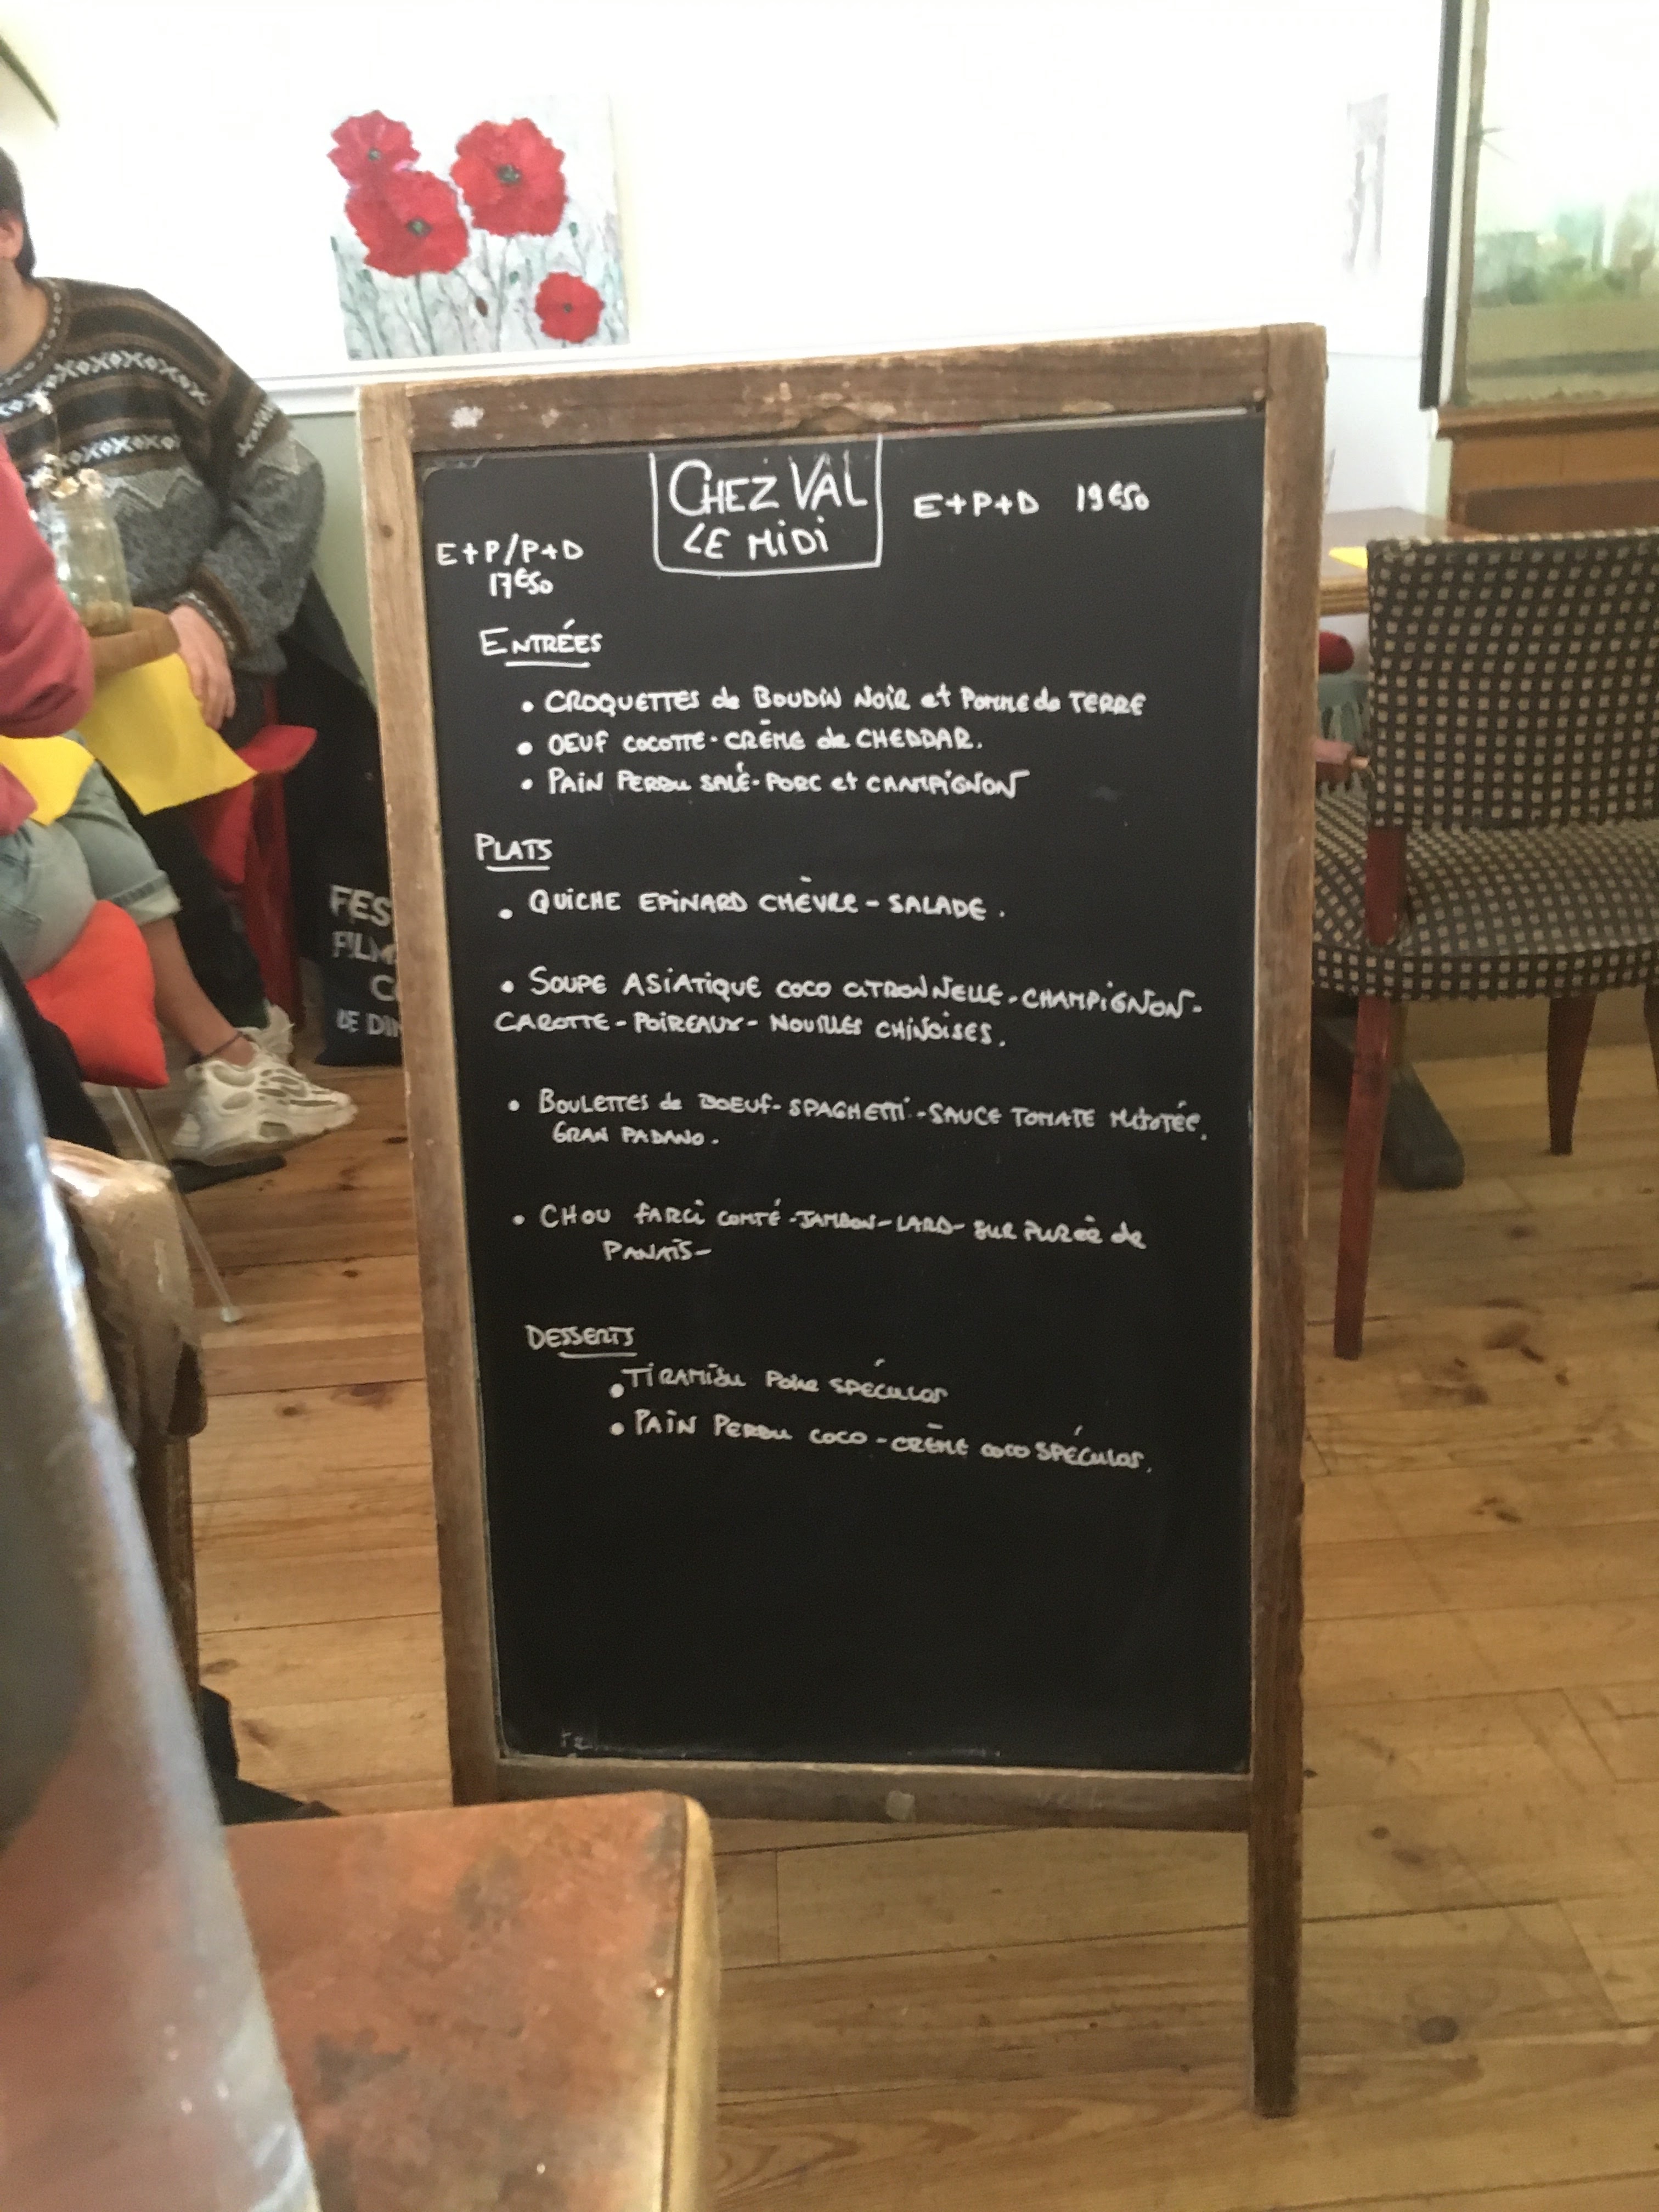 CHEZ VAL
LE MIDI
E+P+D 19€50
E+P/P+D
17€50
ENTRÉES
• CROQUETTES de BOUDIN NOIR et POMME de TERRE
• OEUF COCOTTE - CRÈME de CHEDDAR.
• PAIN PERDU SALÉ - PORC et CHAMPIGNON
PLATS
• QUICHE EPINARD CHÈVRE - SALADE.
• SOUPE ASIATIQUE COCO CITRONNELLE - CHAMPIGNON -
CAROTTE - POIREAUX - NOUILLES CHINOISES.
• BOULETTES de BOEUF - SPAGHETTI - SAUCE TOMATE MIJOTÉE.
GRAN PADANO.
• CHOU FARCI COMTÉ - JAMBON - LARD - SUR PURÉE de
PANAIS -
DESSERTS
• TIRAMISU POIRE SPÉCULOS
• PAIN PERDU COCO - CRÈME COCO SPÉCULOS.
FES
FILM
C
LE DI